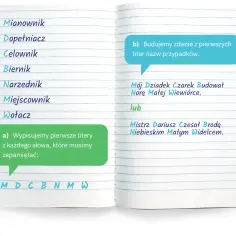 Mianownik
Dopełniacz
Celownik
Biernik
Narzednik
Miejscownik
Wołacz
a) Wypisujemy pierwsze litery
z każdego słowa, które musimy
zapamiętać:
M D C B N M W
b) Budujemy zdanie z pierwszych
liter nazw przypadków.
Mój Dziadek Czarek Budował
Norę Małej Wiewiórce.
lub
Mistrz Dariusz Czesał Brodę
Niebieskim Małym Widelcem.